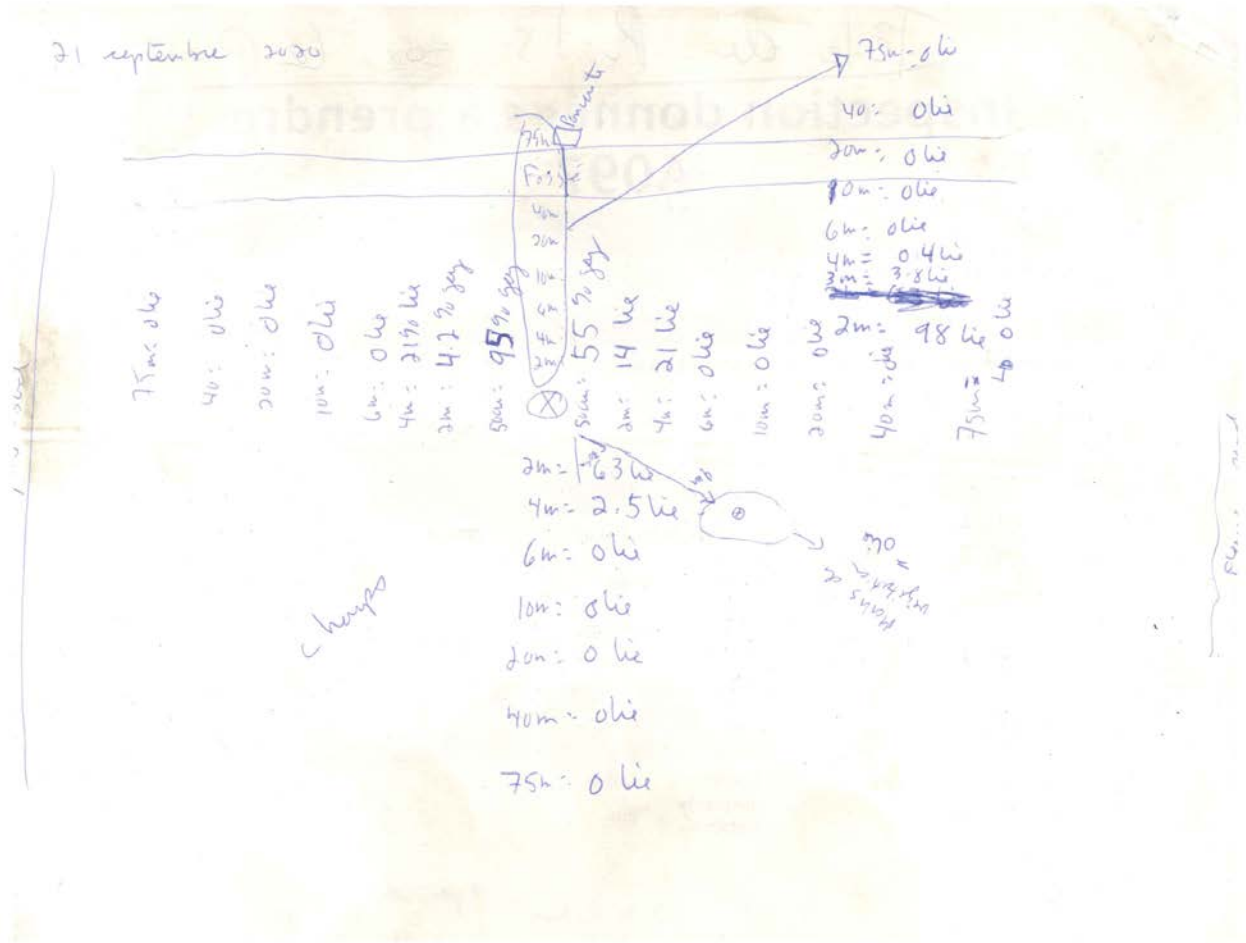 21 septembre 2020
75m = 0 lie
40 = 0 lie
20m = 0 lie
10m = 0 lie
6m = 0 lie
4m = 0.4 lie
3m = 3.8 lie
2m = 98 lie
Pancarte
75m
Fossé
40m
20m
10
5
4
75m = 0 lie
40 = 0 lie
20m = 0 lie
10m = 0 lie
6m = 0 lie
4m = 21% lie
2m = 4.2 %
50cm = 95%
50cm = 55 %
2m = 14 lie
4m = 21 lie
6m = 0 lie
10m = 0 lie
20m = 0 lie
40m = 0 lie
75m = 0 lie
2m = 63 lie
4m = 2.5 lie
6m = 0 lie
10m = 0 lie
20m = 0 lie
40m = 0 lie
75m = 0 lie
0 lie
champs